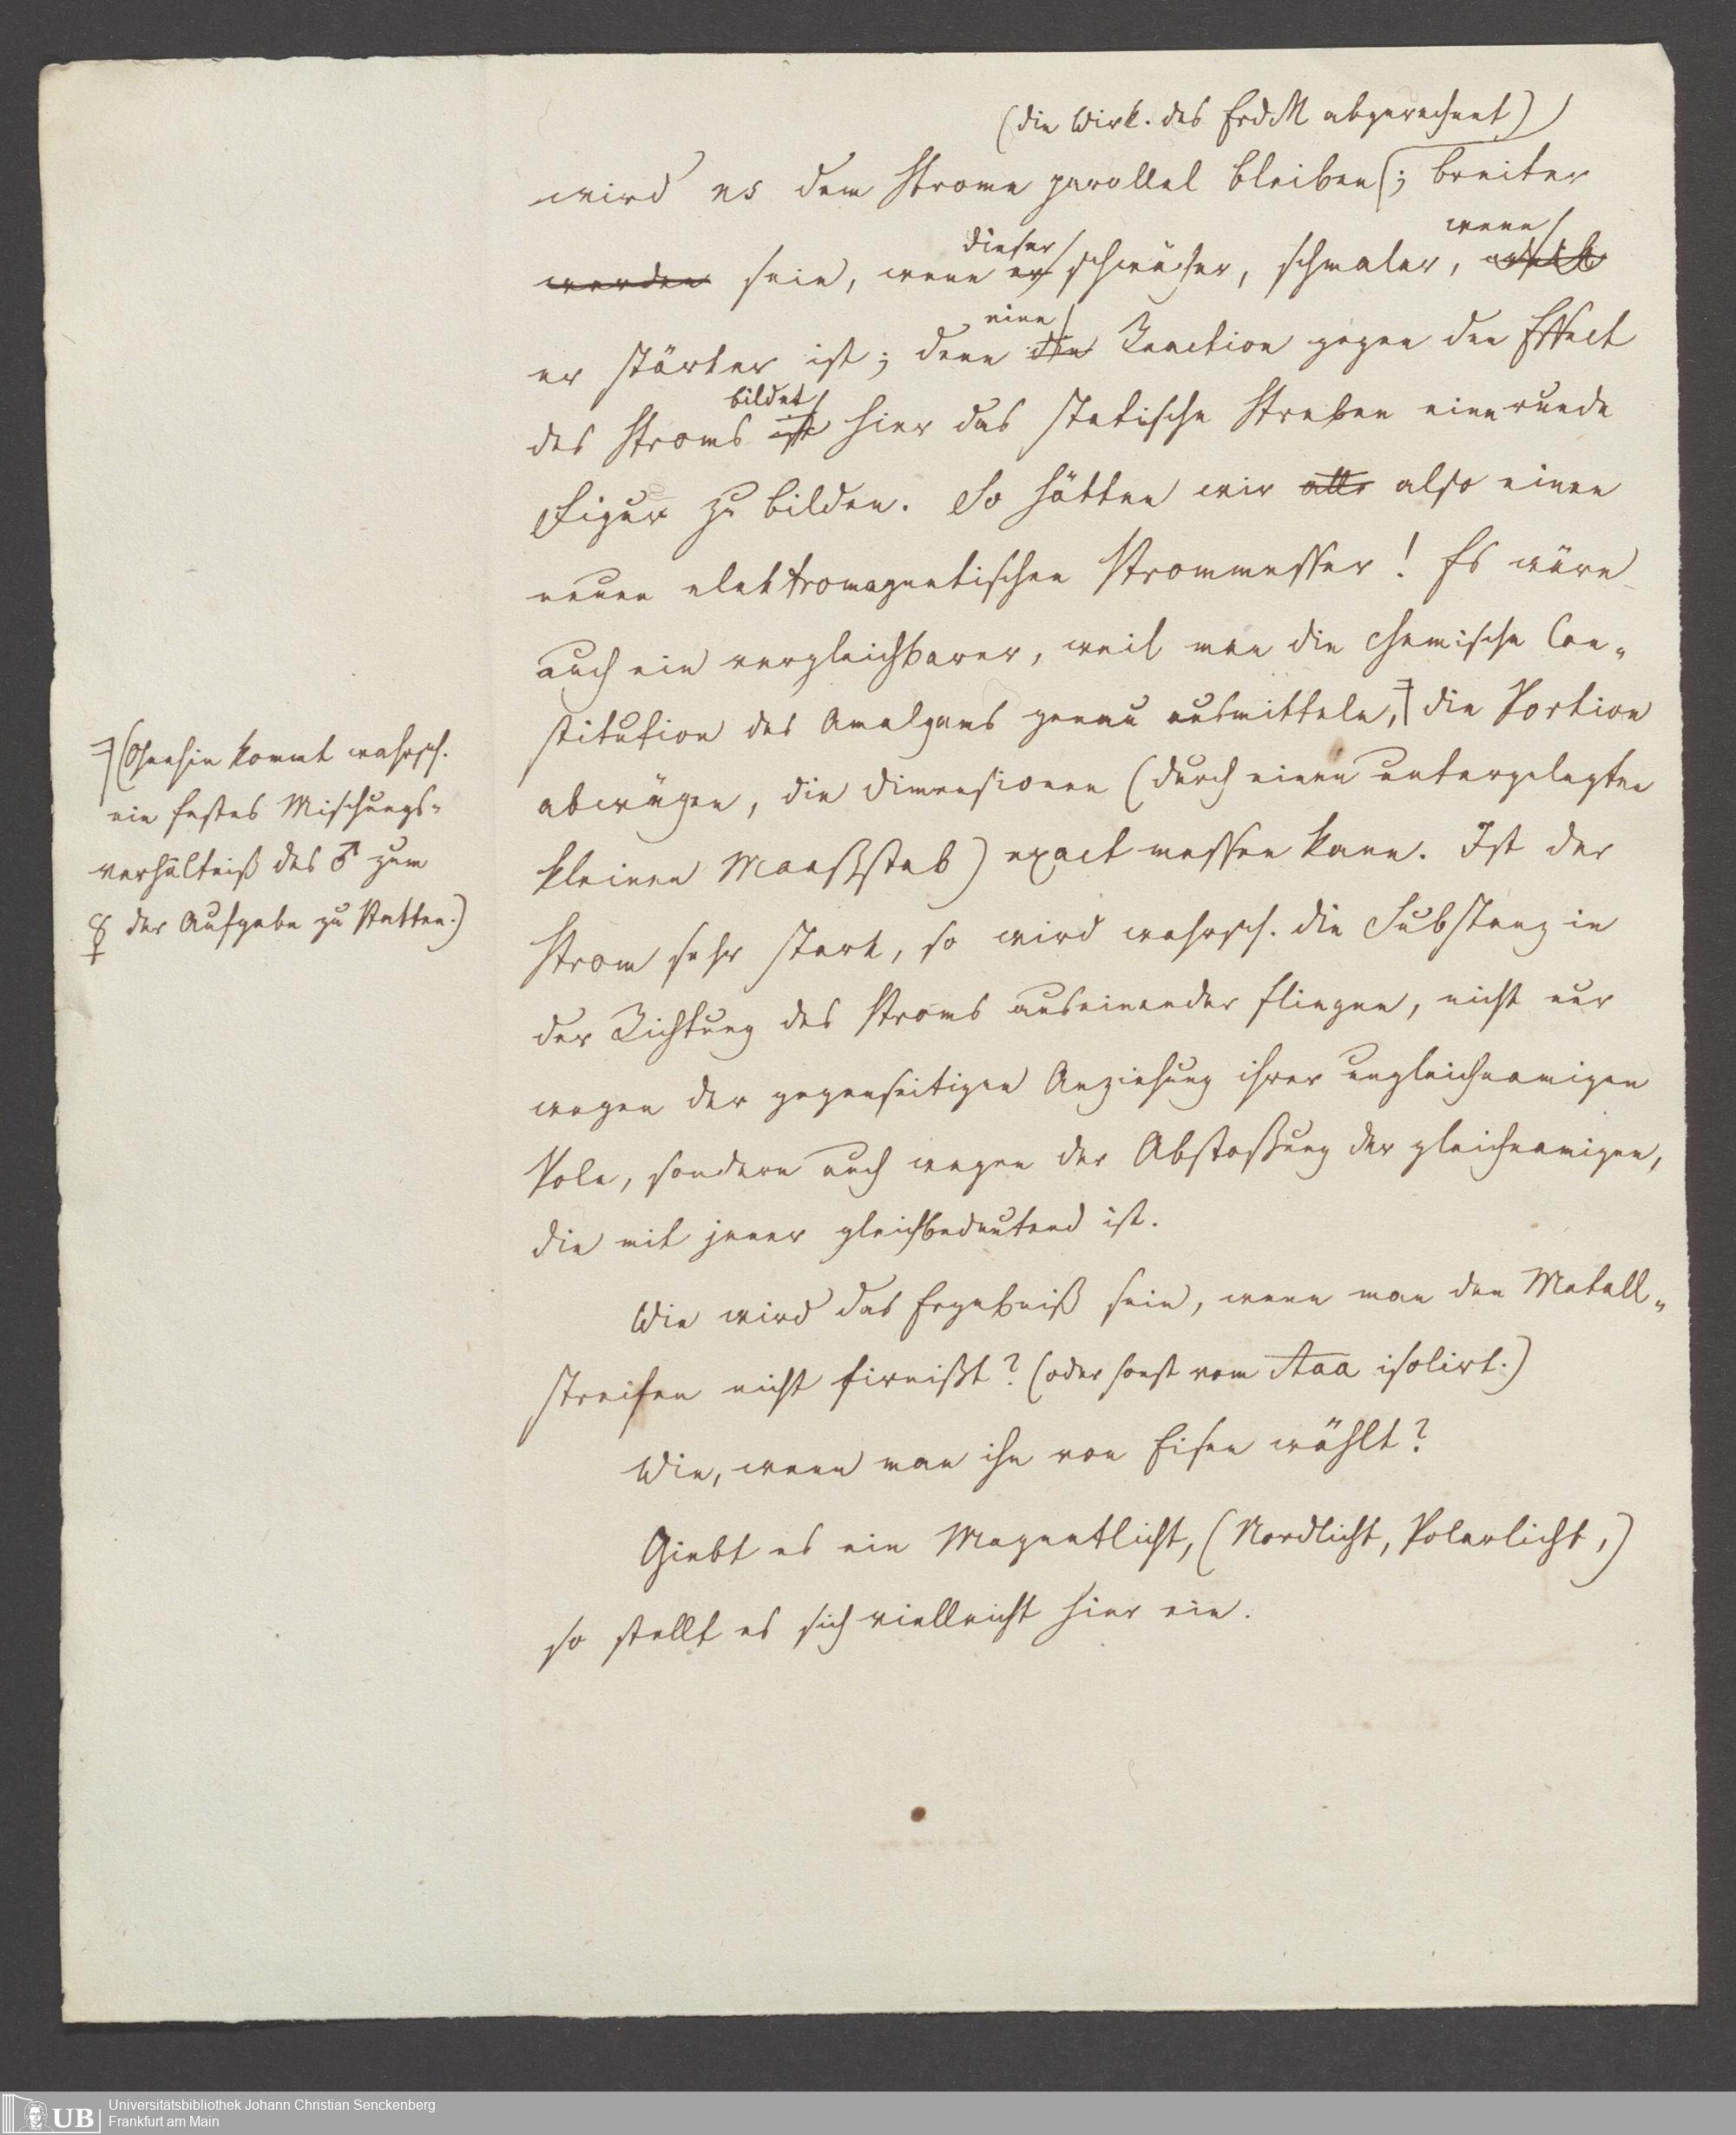 (die Wirk. des ErdM abgerechnet)
wird es dem Strome parallel bleiben; breiter
werden sein, wenn er dieser schwächer, schmaler, weil wenn
er stärker ist; denn die eine Reaction gegen den Effect
des Stroms ist bildet hier das statische Streben eine runde
Figur zu bilden. So hätten wir also einen
neuen elektromagnetischen Strommesser! Es wäre
auch ein vergleichbarer, weil man die chemische Con-
stitution des Amalgams genau ausmitteln, die Portion
abwägen, die Dimensionen (durch einen untergelegten
kleinen Maaßstab) exact messen kann. Ist der
Strom sehr stark, so wird wahrsch. die Substanz in
der Richtung des Stroms auseinander fliegen, nicht nur
wegen der gegenseitigen Anziehung ihrer ungleichnamigen
Pole, sondern auch wegen der Abstoßung der gleichnamigen,
die mit jener gleichbedeutend ist.
Wie wird das Ergebniß sein, wenn man den Metall-
streifen nicht firnißt? (oder sonst vom Aaa isolirt.)
Wie, wenn man ihn von Eisen wählt?
Giebt es ein Magnetlicht, (Nordlicht, Polarlicht,)
so stellt es sich vielleicht hier ein.
(Ohnehin kommt wahrsch.
ein festes Mischungs-
verhältniß des ♂ zum
☿ der Aufgabe zu Statten.)
UB Universitätsbibliothek Johann Christian Senckenberg
Frankfurt am Main